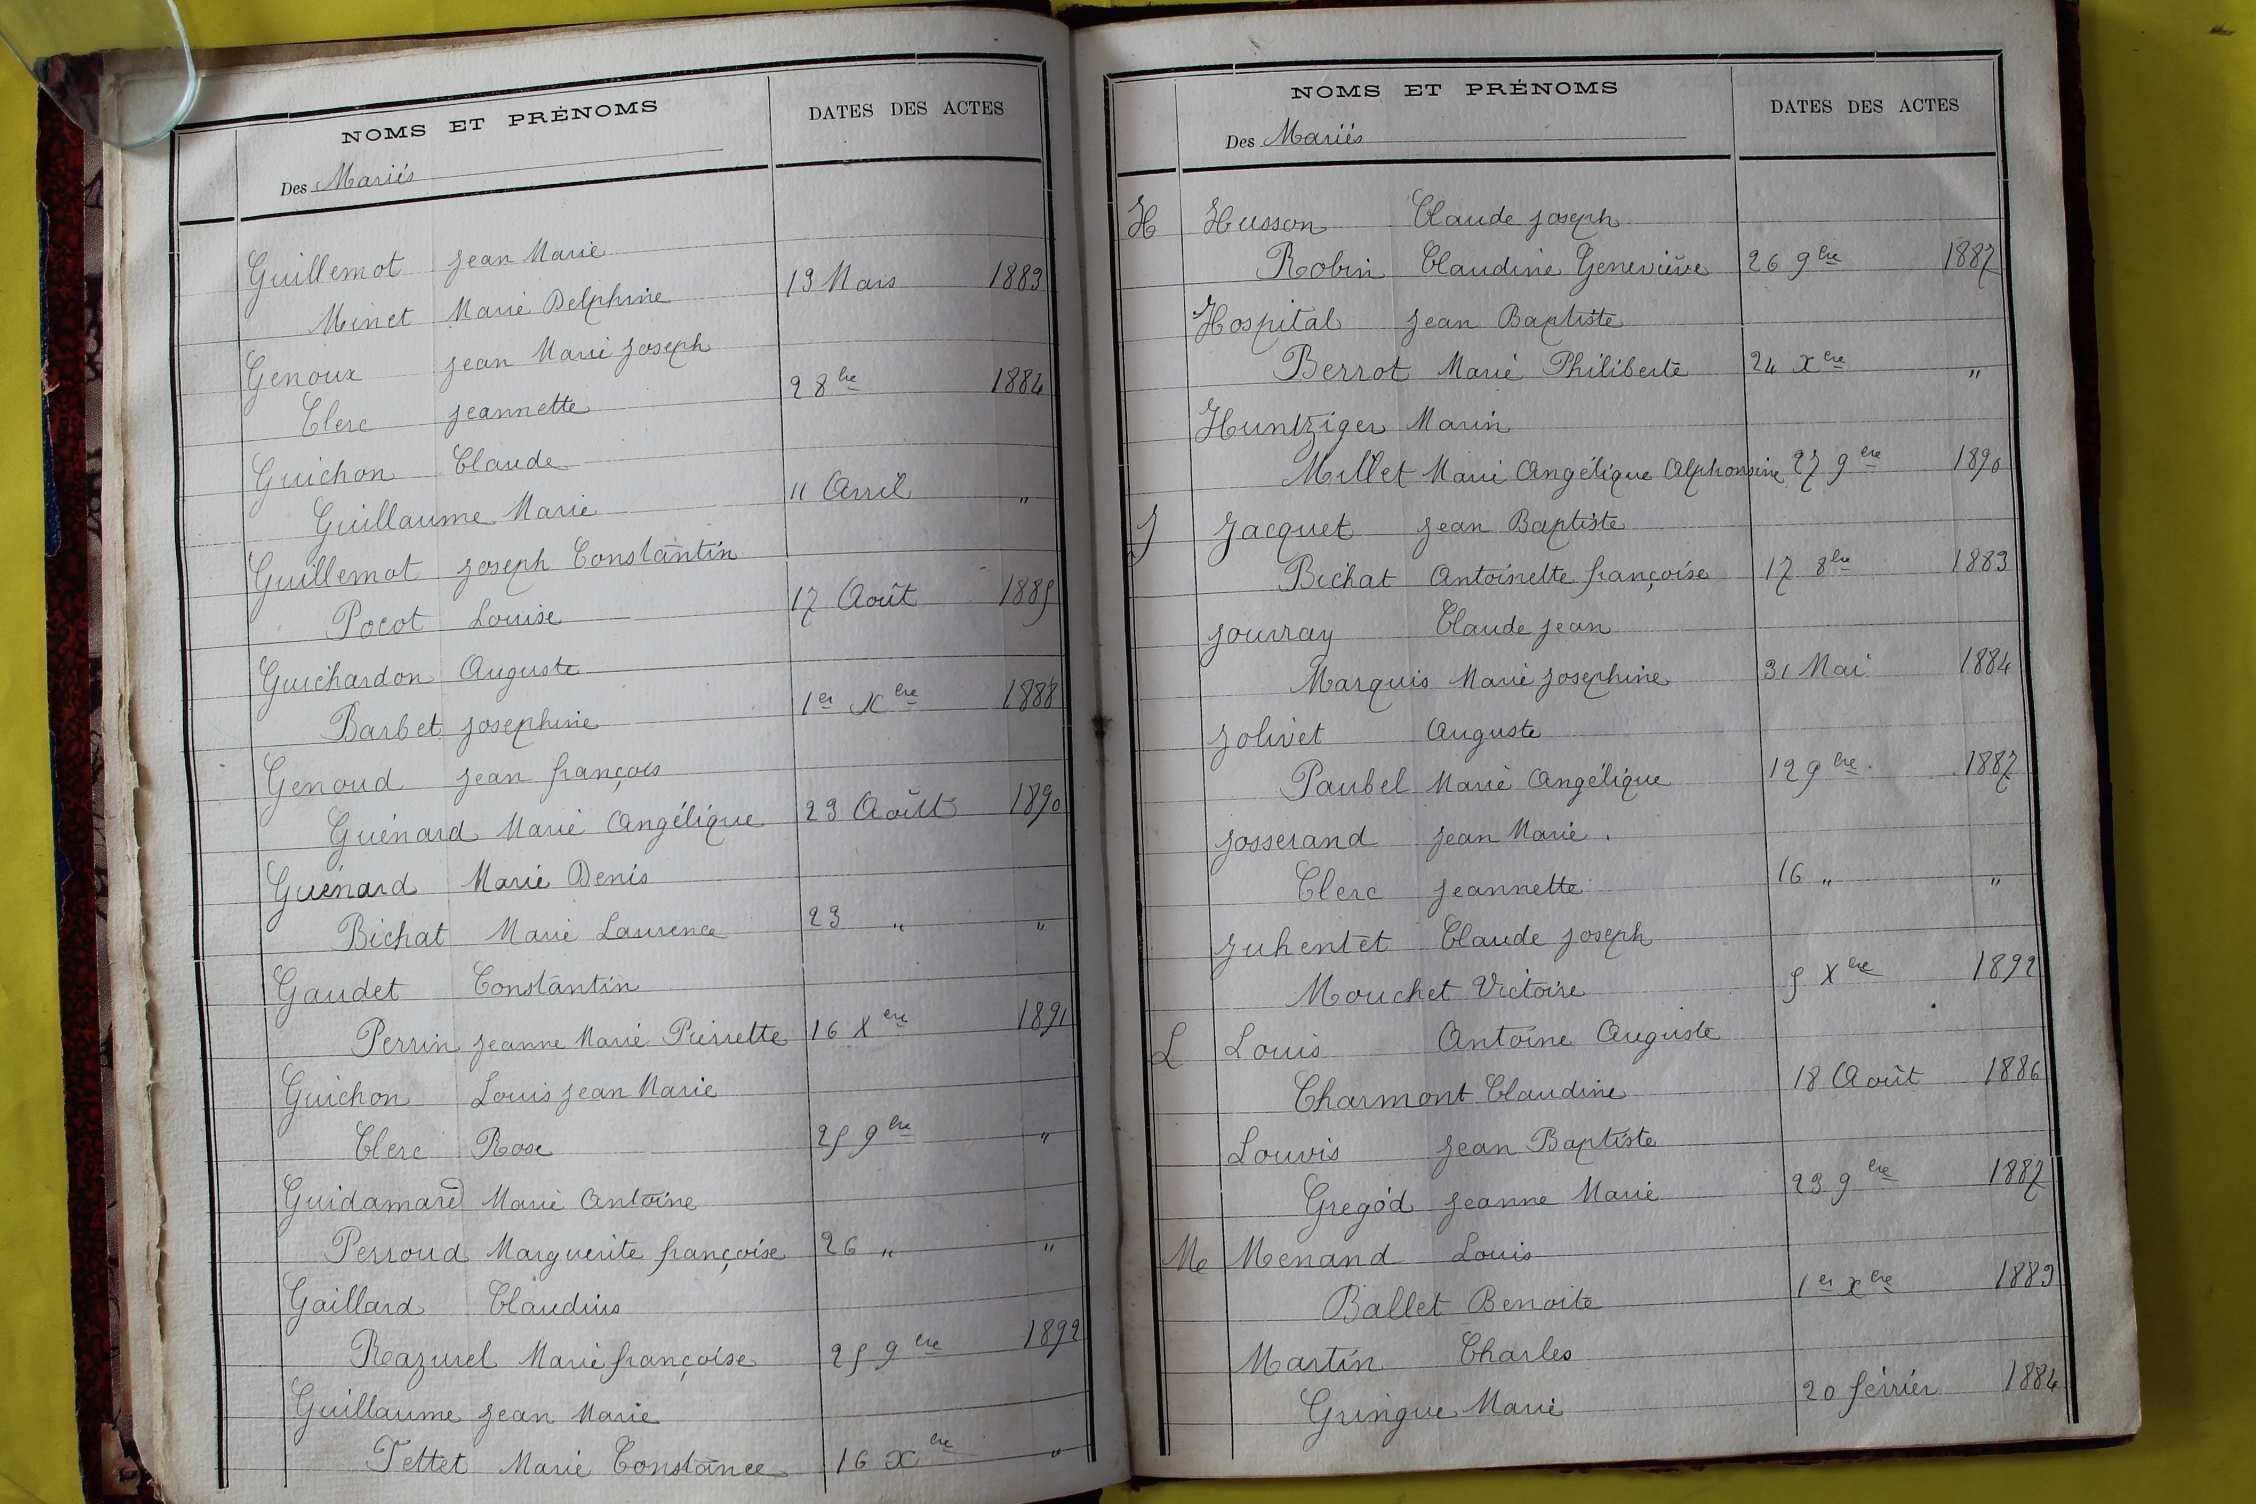 NOMS ET PRÉNOMS
DATES DES ACTES
Des Mariés
Guillemot Jean Marie
Minet Marie Delphine 13 Mars 1883
Genoux Jean Marie Joseph
Clerc Jeannette 2 8bre 1884
Guichon Claude
Guillaume Marie 11 Avril "
Guillemot Joseph Constantin
Pocot Louise 17 Août 1885
Guichardon Auguste
Barbet Josephine 1er Xbre 1888
Genoud Jean françois
Guénard Marie Angélique 23 Août 1890
Guénard Marie Denis
Bichat Marie Laurence 23 " "
Gaudet Constantin
Perrin Jeanne Marie Pierrette 16 Xbre 1891
Guichon Louis Jean Marie
Clerc Rose 25 9bre "
Guidamard Marie Antoine
Perroud Marguerite françoise 26 " "
Gaillard Claudius
Razurel Marie françoise 25 9bre 1892
Guillaume Jean Marie
Tettet Marie Constance 16 Xbre "
NOMS ET PRÉNOMS
DATES DES ACTES
Des Mariés
H Husson Claude Joseph
Robin Claudine Geneviève 26 9bre 1887
Hospital Jean Baptiste
Berrot Marie Philiberte 24 Xbre "
Huntziger Marin
Millet Marie Angélique Alphonsine 27 9bre 1890
J Jacquet Jean Baptiste
Bichat Antoinette françoise 17 8bre 1883
Jouvray Claude Jean
Marquis Marie Josephine 31 Mai 1884
Jolivet Auguste
Paubel Marie Angélique 12 9bre 1887
Josserand Jean Marie
Clerc Jeannette 16 " "
Juhentet Claude Joseph
Mouchet Victoire 5 Xbre 1892
L Louis Antoine Auguste
Charmont Claudine 18 Août 1886
Louvis Jean Baptiste
Gregod Jeanne Marie 23 9bre 1887
M Menand Louis
Ballet Benoite 1er Xbre 1883
Martin Charles
Gringue Marie 20 février 1884